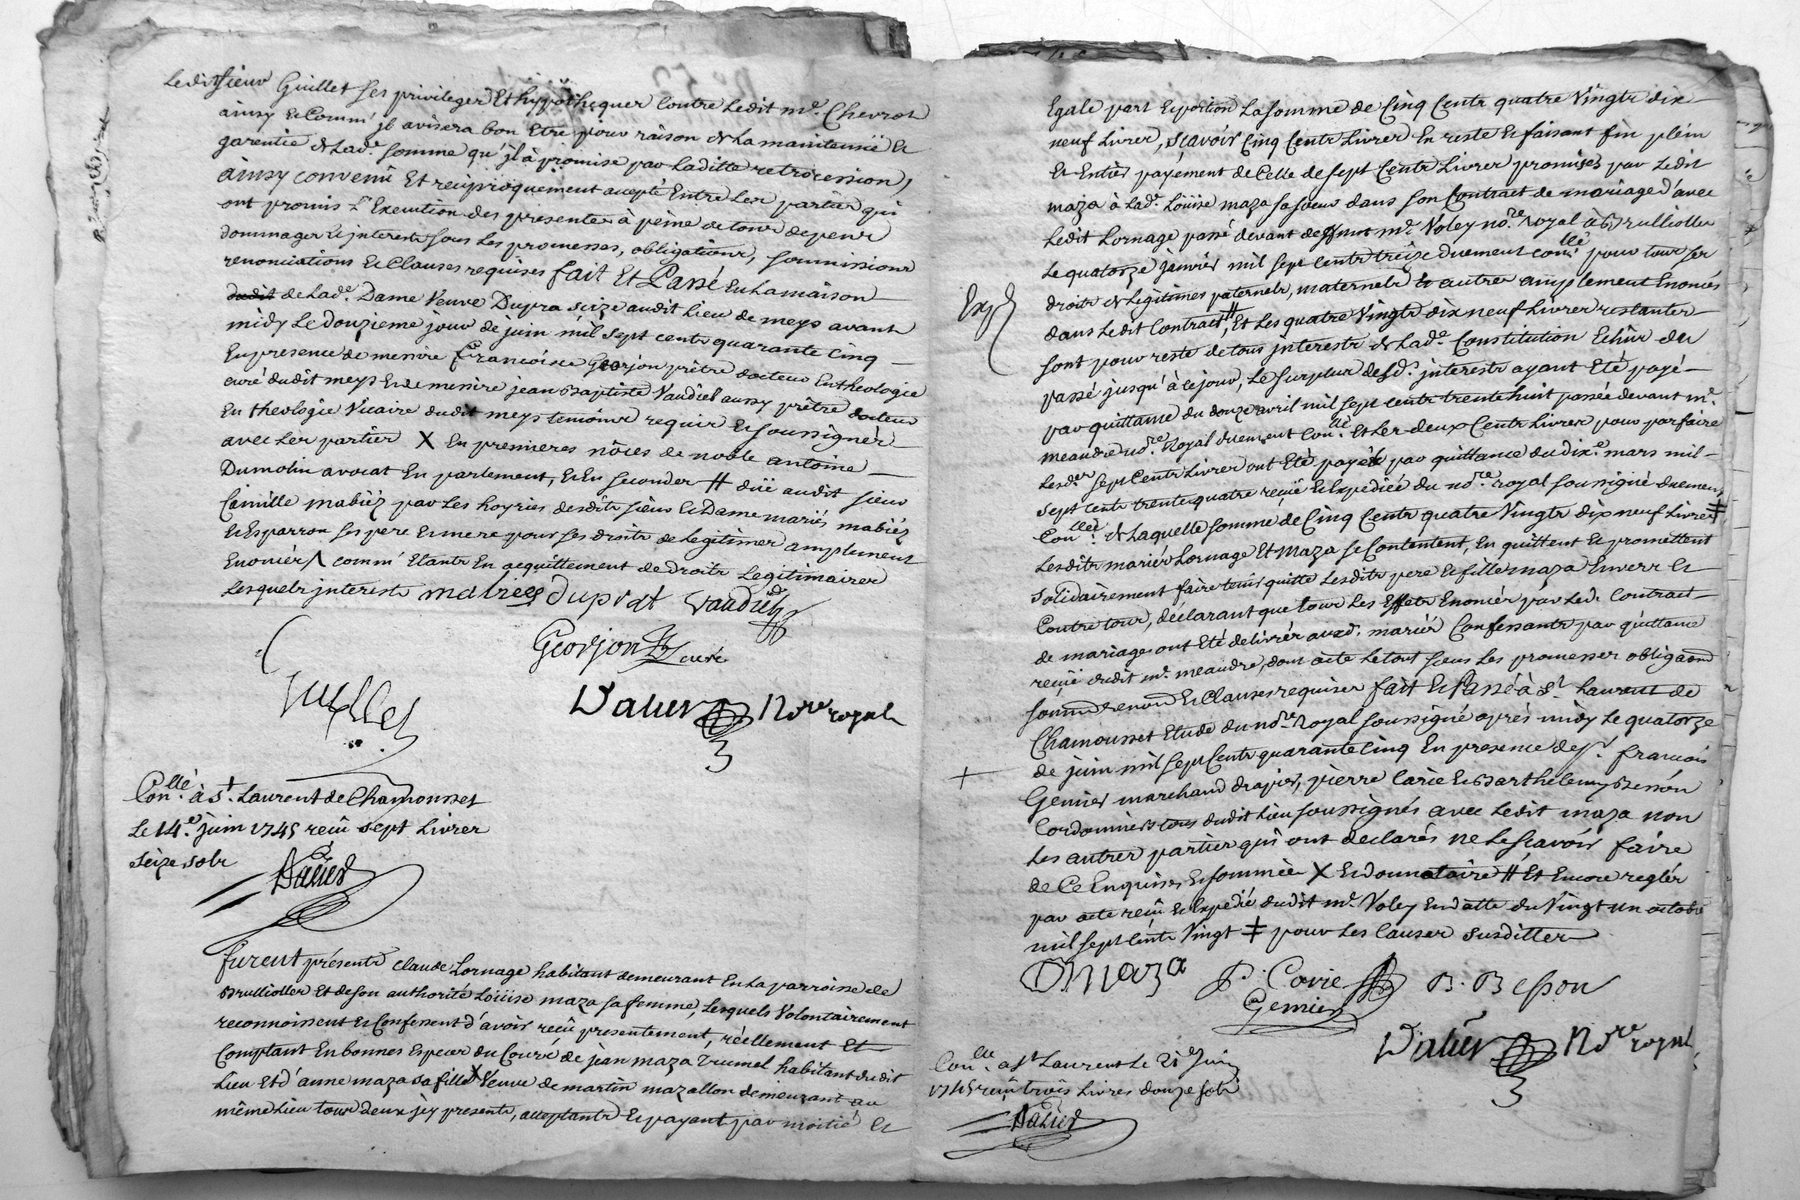 Ledit sieur Guillet ses privileges Et hyppotheques Contre Ledit mr. Chevrot
ainsy Et Comm' jl avisera bon Etre pour raison de La maintenüe Et
garentie de Lade. somme qu'jl à promise par Laditte retrocession,
ainsy convenü Et reciproquement accepté Entre Les parties qui
ont promis Execution des presentes à peine de tous depens
dommages Et interests sous Les promesses, obligations, soumissions
renonciations Et Clauses requises fait Et Passé En La maison
de Lade. Dame Veuve Dupra size audit Lieu de meys avant
midy Le douzieme jour de juin mil sept cents quarante Cinq
En presence de messire francois Georjon prêtre docteur En theologie
curé dudit meys Et de messire jean Baptiste Vaudiel aussy prêtre docteur
En theologie Vicaire dudit meys temoins requis Et soussignés
avec Les parties X En premieres nôces de noble antoine
Dumolin avocat En parlement, Et En secondes # düe audit sieur
Camille mabiéz par Les hoyries desdits sieur Et Dame mariés mabiéz
Et Esparron ses pere Et mere pour ses droits de Legitimes amplement
Enoncés comm' Etants En acquittement de droits Legitimaires
Lesquels interests mabiez duprat vaudiel
Georjon curé
Guillet
Dalier Nore royal
Conllé. à St. Laurent de Chamousset
Le 14e. juin 1745 reçû sept Livres
seize sols
Dalier
furent présents claude Lornage habitant demeurant En La parroisse de
Brulliolles Et de son authorité Loüise maza sa femme, Lesquels Volontairement
reconnoissent Et Confessent d'avoir reçû presentement, réellement Et
Comptant En bonnes Especes du Cours de jean maza habitant dudit
Lieu Et d'anne maza sa fille X Veuve de martin mazallon demeurant au
même Lieu tous deux jcy presents, acceptants Et payant par moitié Et
Egale part Et portion La somme de Cinq Cents quatre Vingts dix
neuf Livres, sçavoir Cinq Cents Livres En reste Et faisant fin plein
Et Entier payement de Celle de sept Cents Livres promises par Ledit
maza à Lade. Loüise maza sa soeur dans son Contract de mariage d'avec
Ledit Lornage passé devant deffunt mr. Voley nore. Royal à Brulliolles
Le quatorze janvier mil sept cents treize duement conllé. pour tous ses
droits de Legitimes paternels, maternels Et autres amplement Enoncés
Exp
dans Ledit Contract #, Et Les quatre Vingts dix neuf Livres restantes
sont pour reste de tous jnterests de Lade. Constitution Echûs du
passé jusqu'à ce jour, Le surplus desd. jnterests ayant Eté payé
par quittance du douze avril mil sept cents trente huit passée devant mr.
meandre nore. Royal duement Conllé. Et Les deux Cents Livres pour parfaire
Lesdes. sept Cents Livres ont Eté payés par quittance du dixe. mars mil
sept cents trente quatre reçüe Et Expediée du nore. royal soussigné duement
Conllée. de Laquelle somme de Cinq Cents quatre Vingts dix neuf Livres ‡
Lesdits mariés Lornage Et Maza se Contentent, En quittent Et promettent
solidairement faire tenir quitte Lesdits pere Et fille maza Envers Et
Contre tous, déclarant que tous Les Effets Enoncés par Led. Contract
de mariage ont Eté delivrés auxd. mariés Confessants par quittance
reçüe dudit mr. meandre, dont acte Le tout sous Les promesses obligaons
soumons renons Et Clauses requises fait Et Passé à St Laurent de
Chamousset Etude du nore. Royal soussigné après midy Le quatorze
de juin mil sept Cents quarante Cinq En presence de sr francois
Genier marchand drapier, pierre Carie Et Barthelemy Besson
Cordonniers tous dudit Lieu soussignés avec Ledit maza non
Les autres parties qui ont declarés ne Le sçavoir faire
de Ce Enquises Et sommées X Et donnataire # Et Encore reglés
par acte reçû Et Expedié dudit mr. Voley En datte du Vingt un octobre
mil sept Cents Vingt ‡ pour Les Causes susdittes
Maza P. Carie B. Besson
Genier
Dalier Nore royal
Conllé. a St Laurent Le 21e Juin
1745 reçû trois Livres douze sols
Dalier